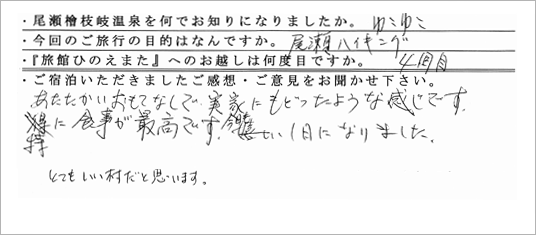 ・尾瀬檜枝岐温泉を何でお知りになりましたか。 ゆこゆこ
・今回のご旅行の目的はなんですか。 尾瀬ハイキング
・『旅館ひのえまた』へのお越しは何度目ですか。 4回目
・ご宿泊いただきましたご感想・ご意見をお聞かせ下さい。
あたたかいおもてなしで、実家にもどったような感じです。
特に食事が最高です。 嬉しい1日になりました。
とてもいい村だと思います。